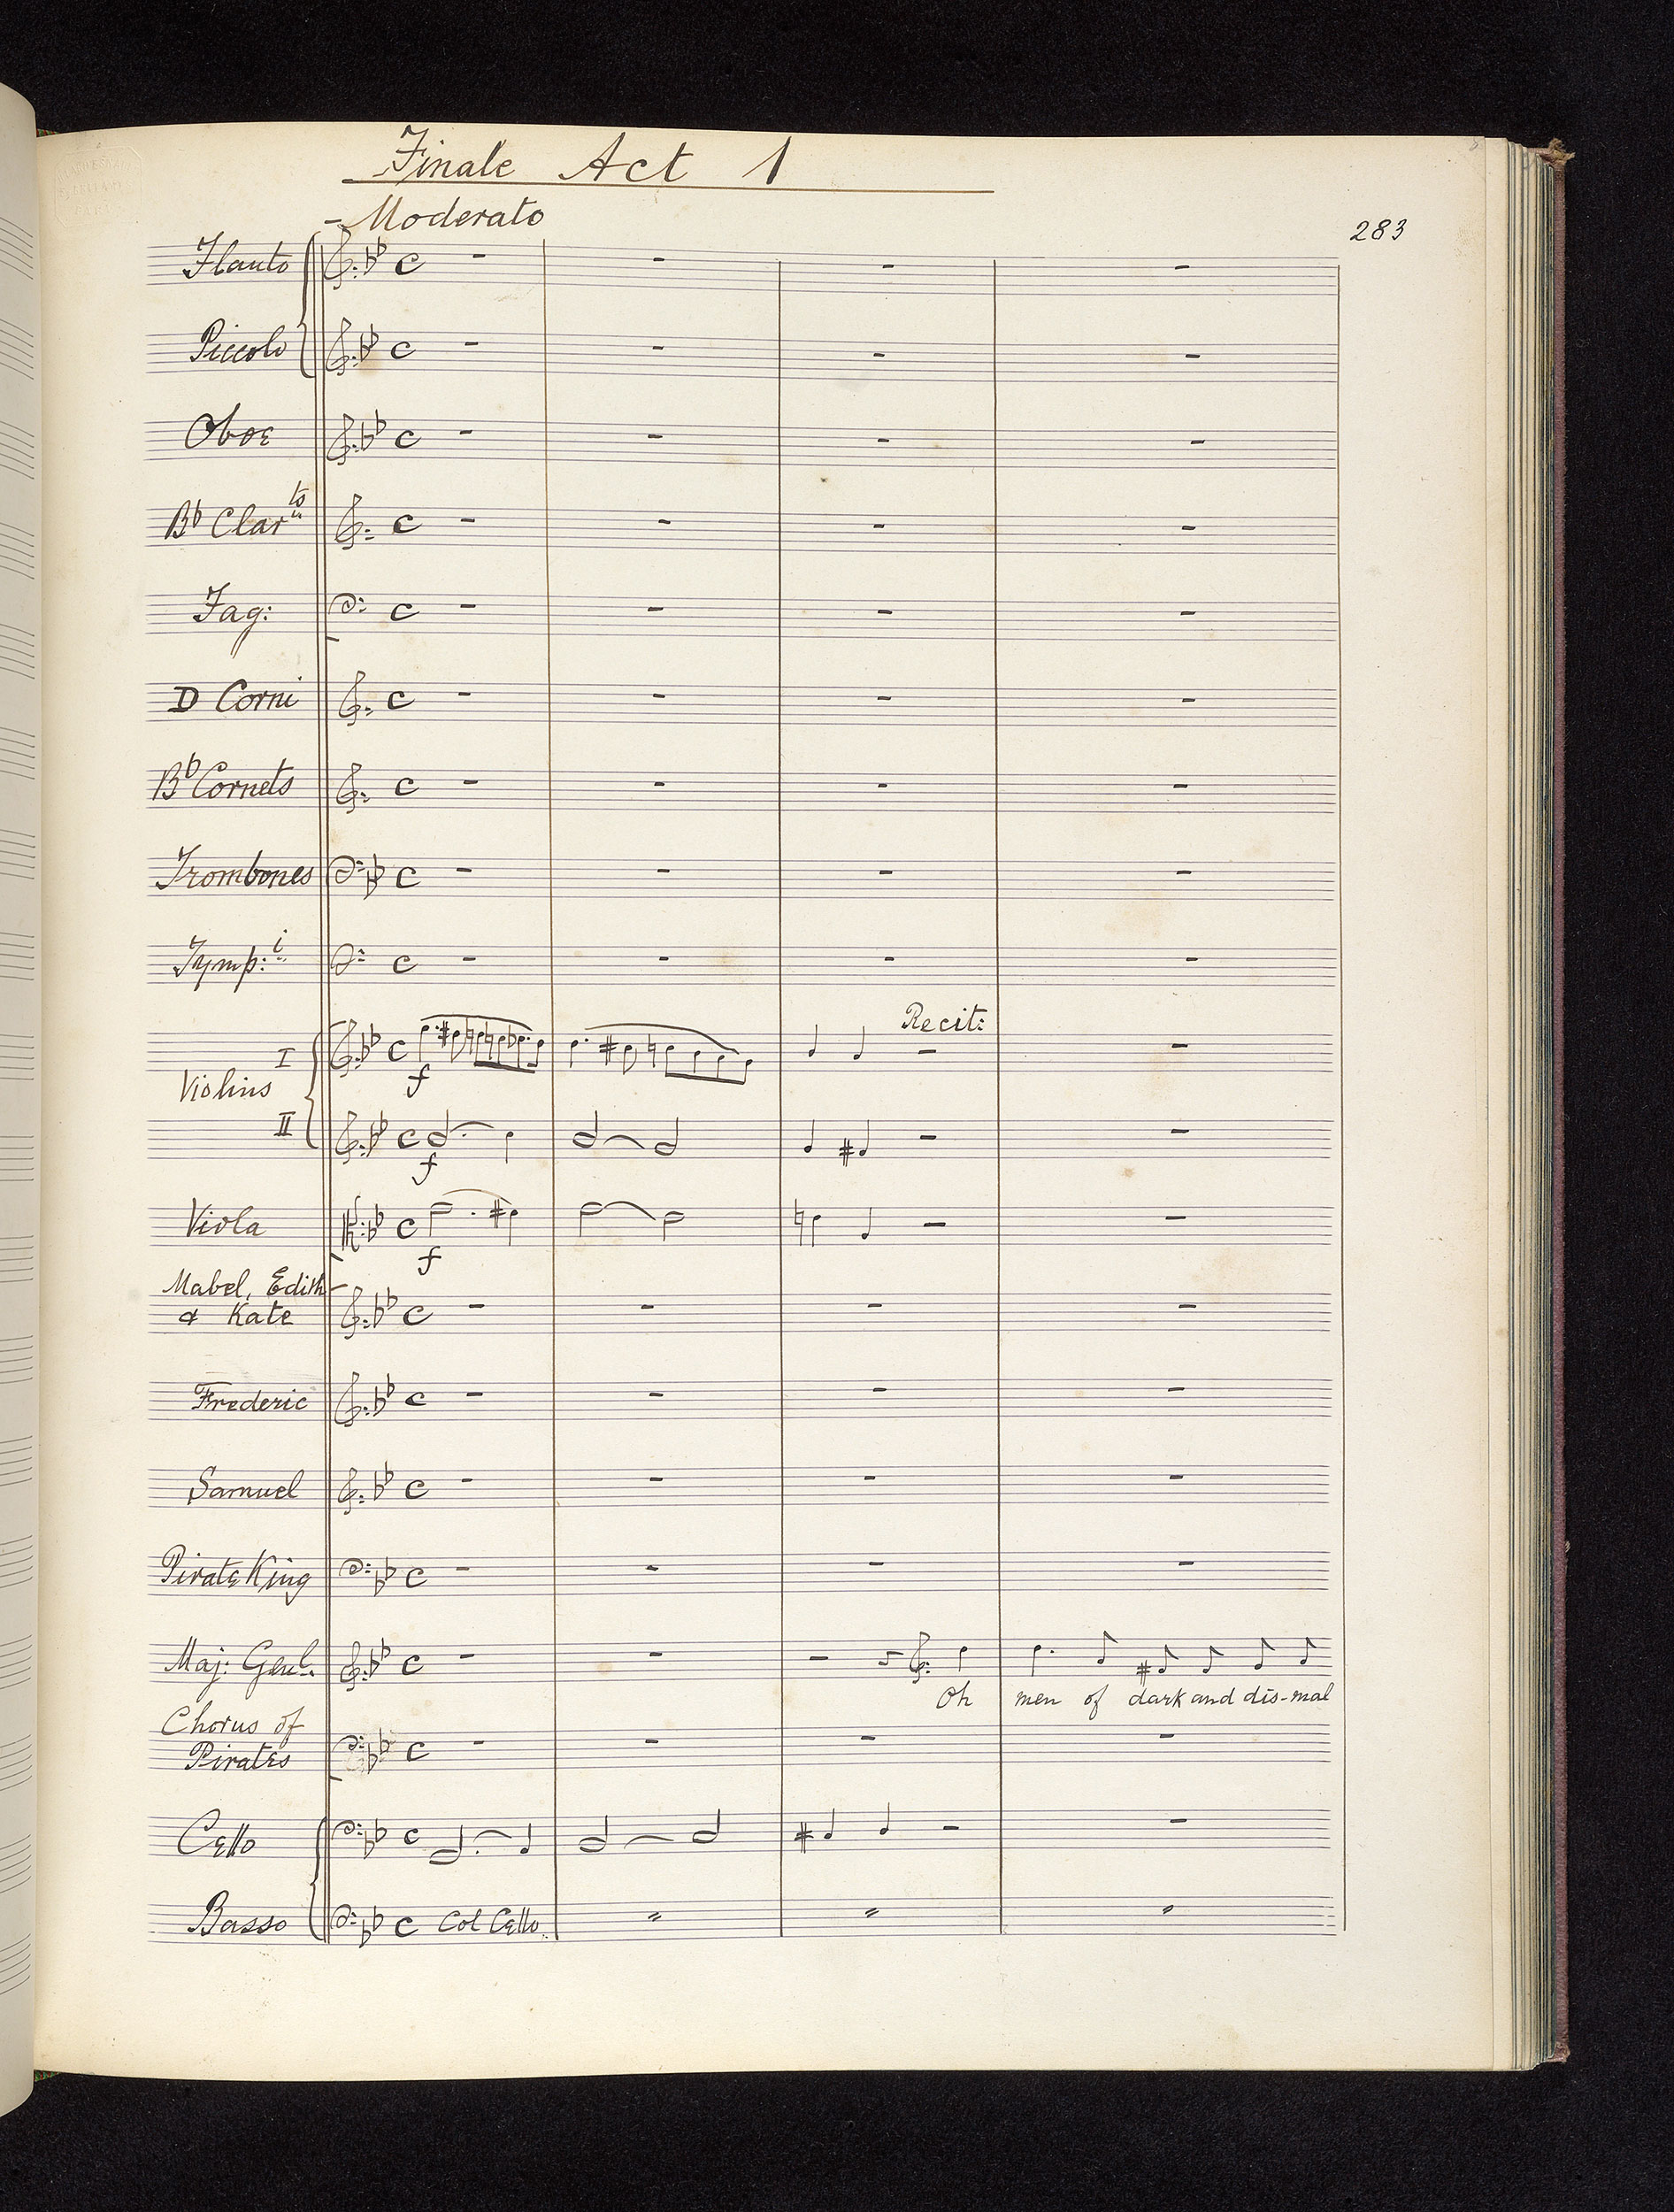 Finale Act 1
Moderato
283
Flauto
Piccolo
Oboe
B♭ Clarts
Fag:
D Corni
B♭ Cornets
Trombones
Tymp:i
Recit:
I
Violins
f
II
f
Viola
f
Mabel, Edith
& Kate
Frederic
Samuel
Pirate King
Maj: Genl.
Oh men of dark and dis-mal
Chorus of
Pirates
Cello
Basso
Col Cello